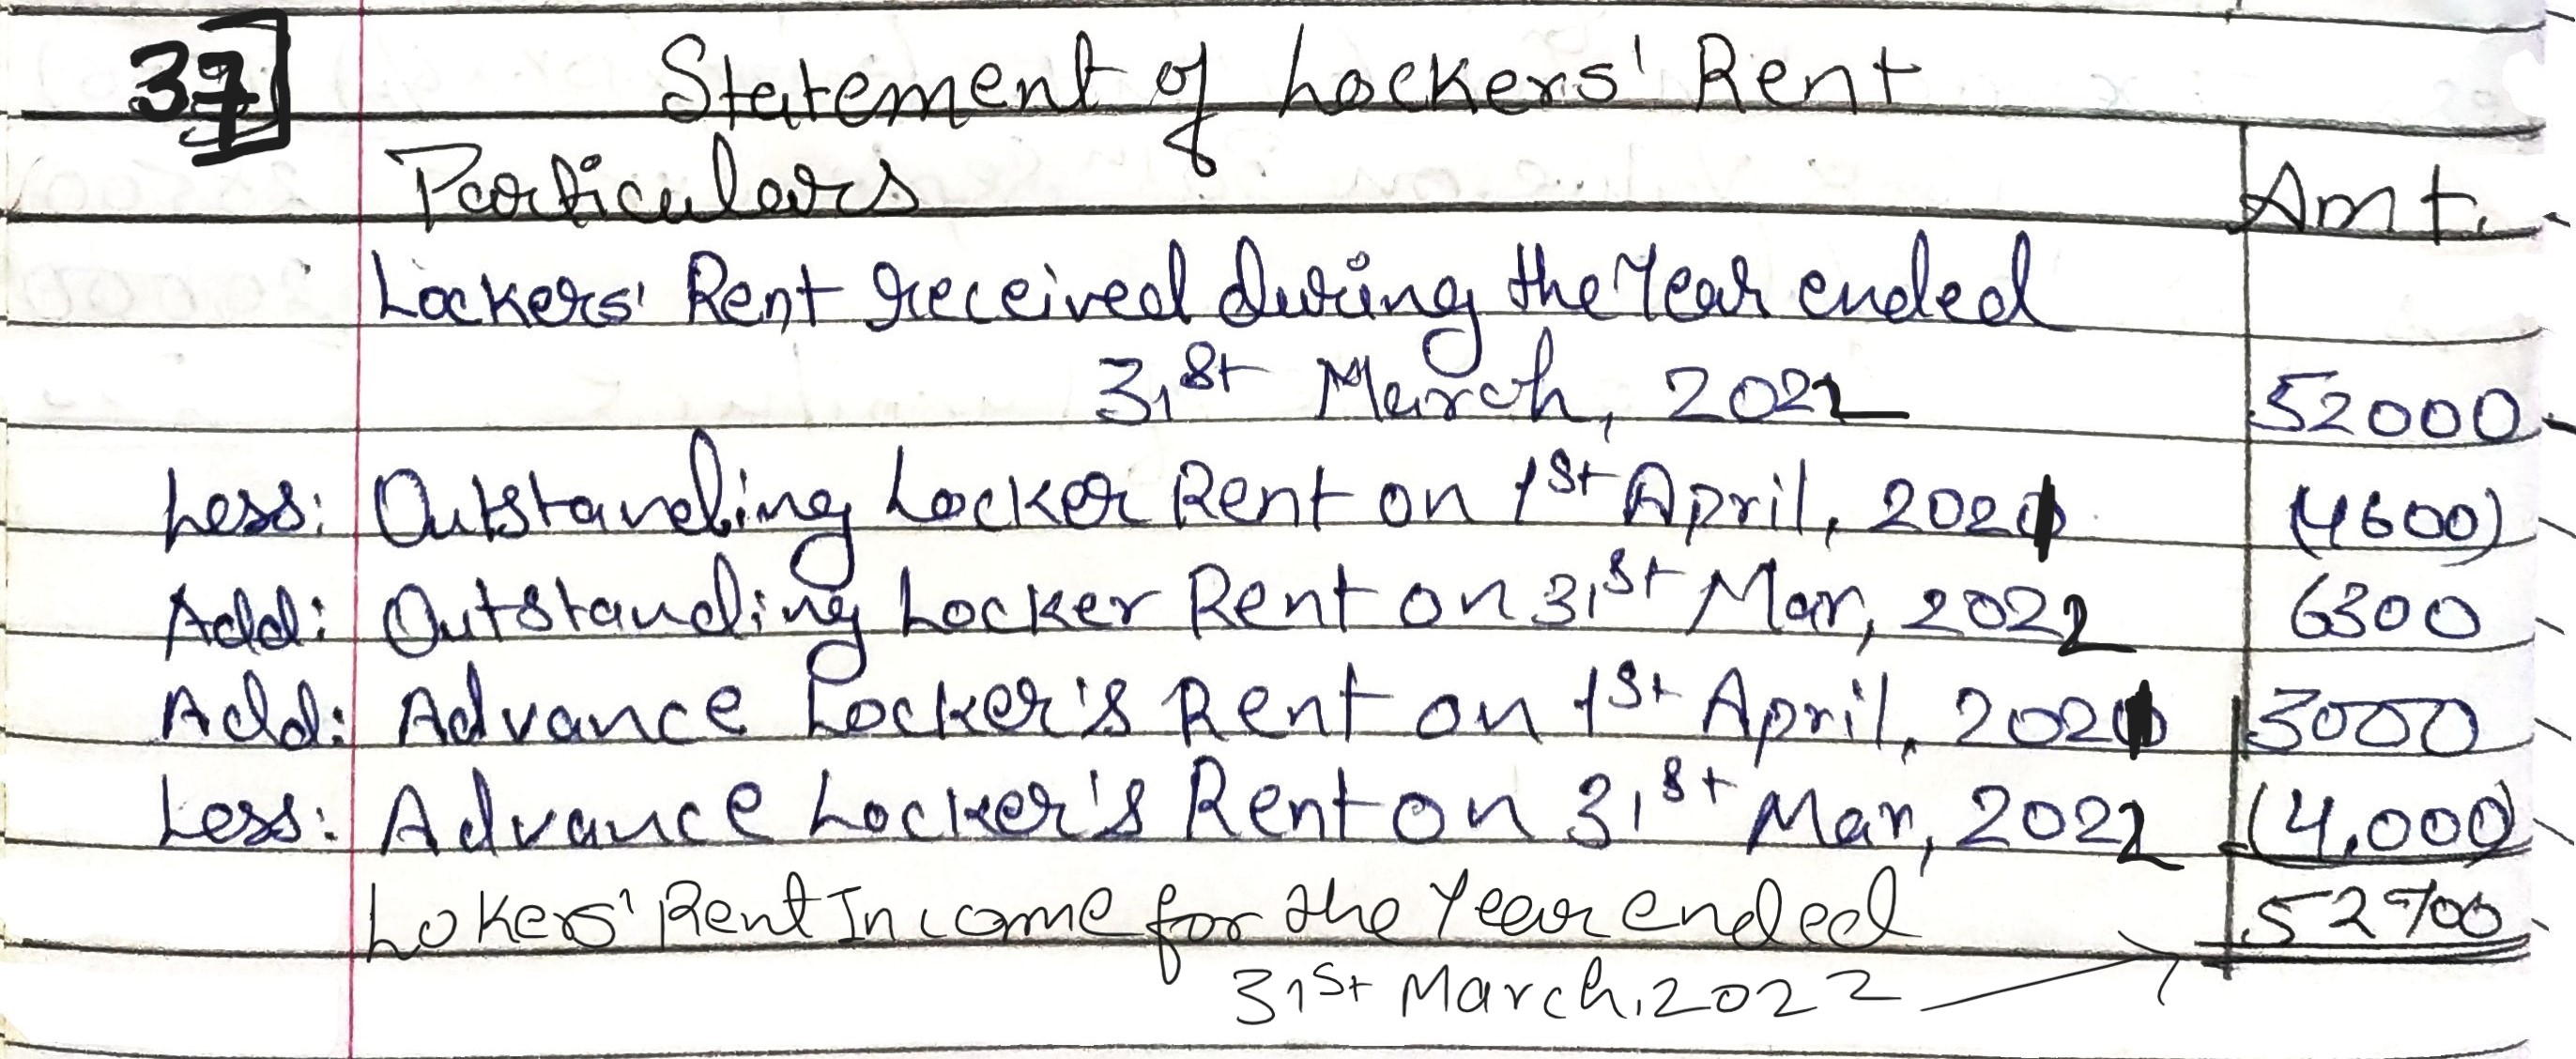 37 Statement of Lockers' Rent
Particulars Amt.
Lockers' Rent received during the Year ended
31st March, 2022 52000
Less: Outstanding Locker Rent on 1st April, 2021 (4600)
Add: Outstanding Locker Rent on 31st Mar, 2022 6300
Add: Advance Locker's Rent on 1st April, 2021 3000
Less: Advance Locker's Rent on 31st Mar, 2022 (4,000)
Lokers' Rent Income for the Year ended 52700
31st March, 2022